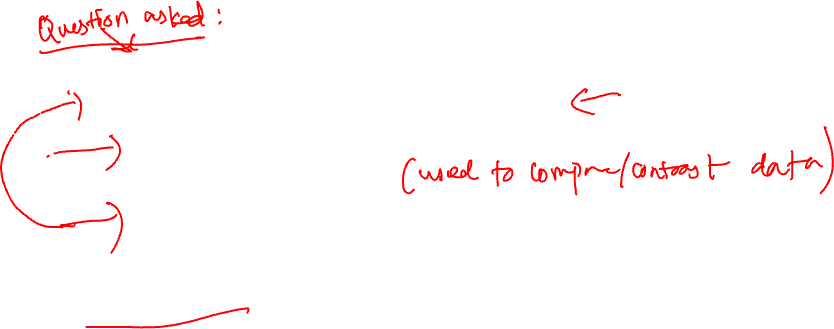 Question asked :
(used to compare/contrast data)